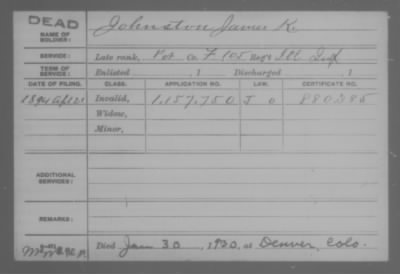 DEAD
NAME OF SOLDIER: Johnston James K.
SERVICE: Late rank, Pvt Co. F, 105 Reg't Ill Inf
TERM OF SERVICE: Enlisted , 1 Discharged , 1
DATE OF FILING. CLASS. APPLICATION NO. LAW. CERTIFICATE NO.
1894 Invalid, 1,157,750 880285
Widow,
Minor,
ADDITIONAL SERVICES:
REMARKS:
Died Jan 30, 1920, at Denver, Colo.